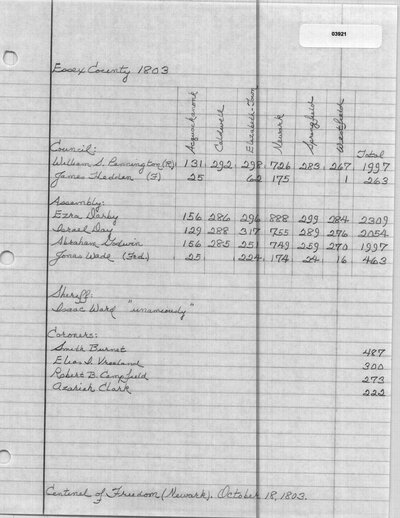 03921
Essex County 1803
Acquackanonk Caldwell Elizabeth-Town Newark Springfield Westfield
Council: Total
William S. Pennington (R) 131 292 298 726 283 267 1997
James Hedden (F) 25 62 175 1 263
Assembly:
Ezra Darby 156 286 296 888 299 284 2309
Israel Day 129 288 317 755 289 276 2054
Abraham Godwin 156 285 251 749 259 270 1997
Jonas Wade (Fed) 25 224 174 24 16 463
Sheriff:
Isaac Ward "unanimously"
Coroners:
Smith Burnet 487
Elias I. Vreeland 300
Robert B. Campfield 273
Azariah Clark 222
Centinel of Freedom (Newark). October 18, 1803.